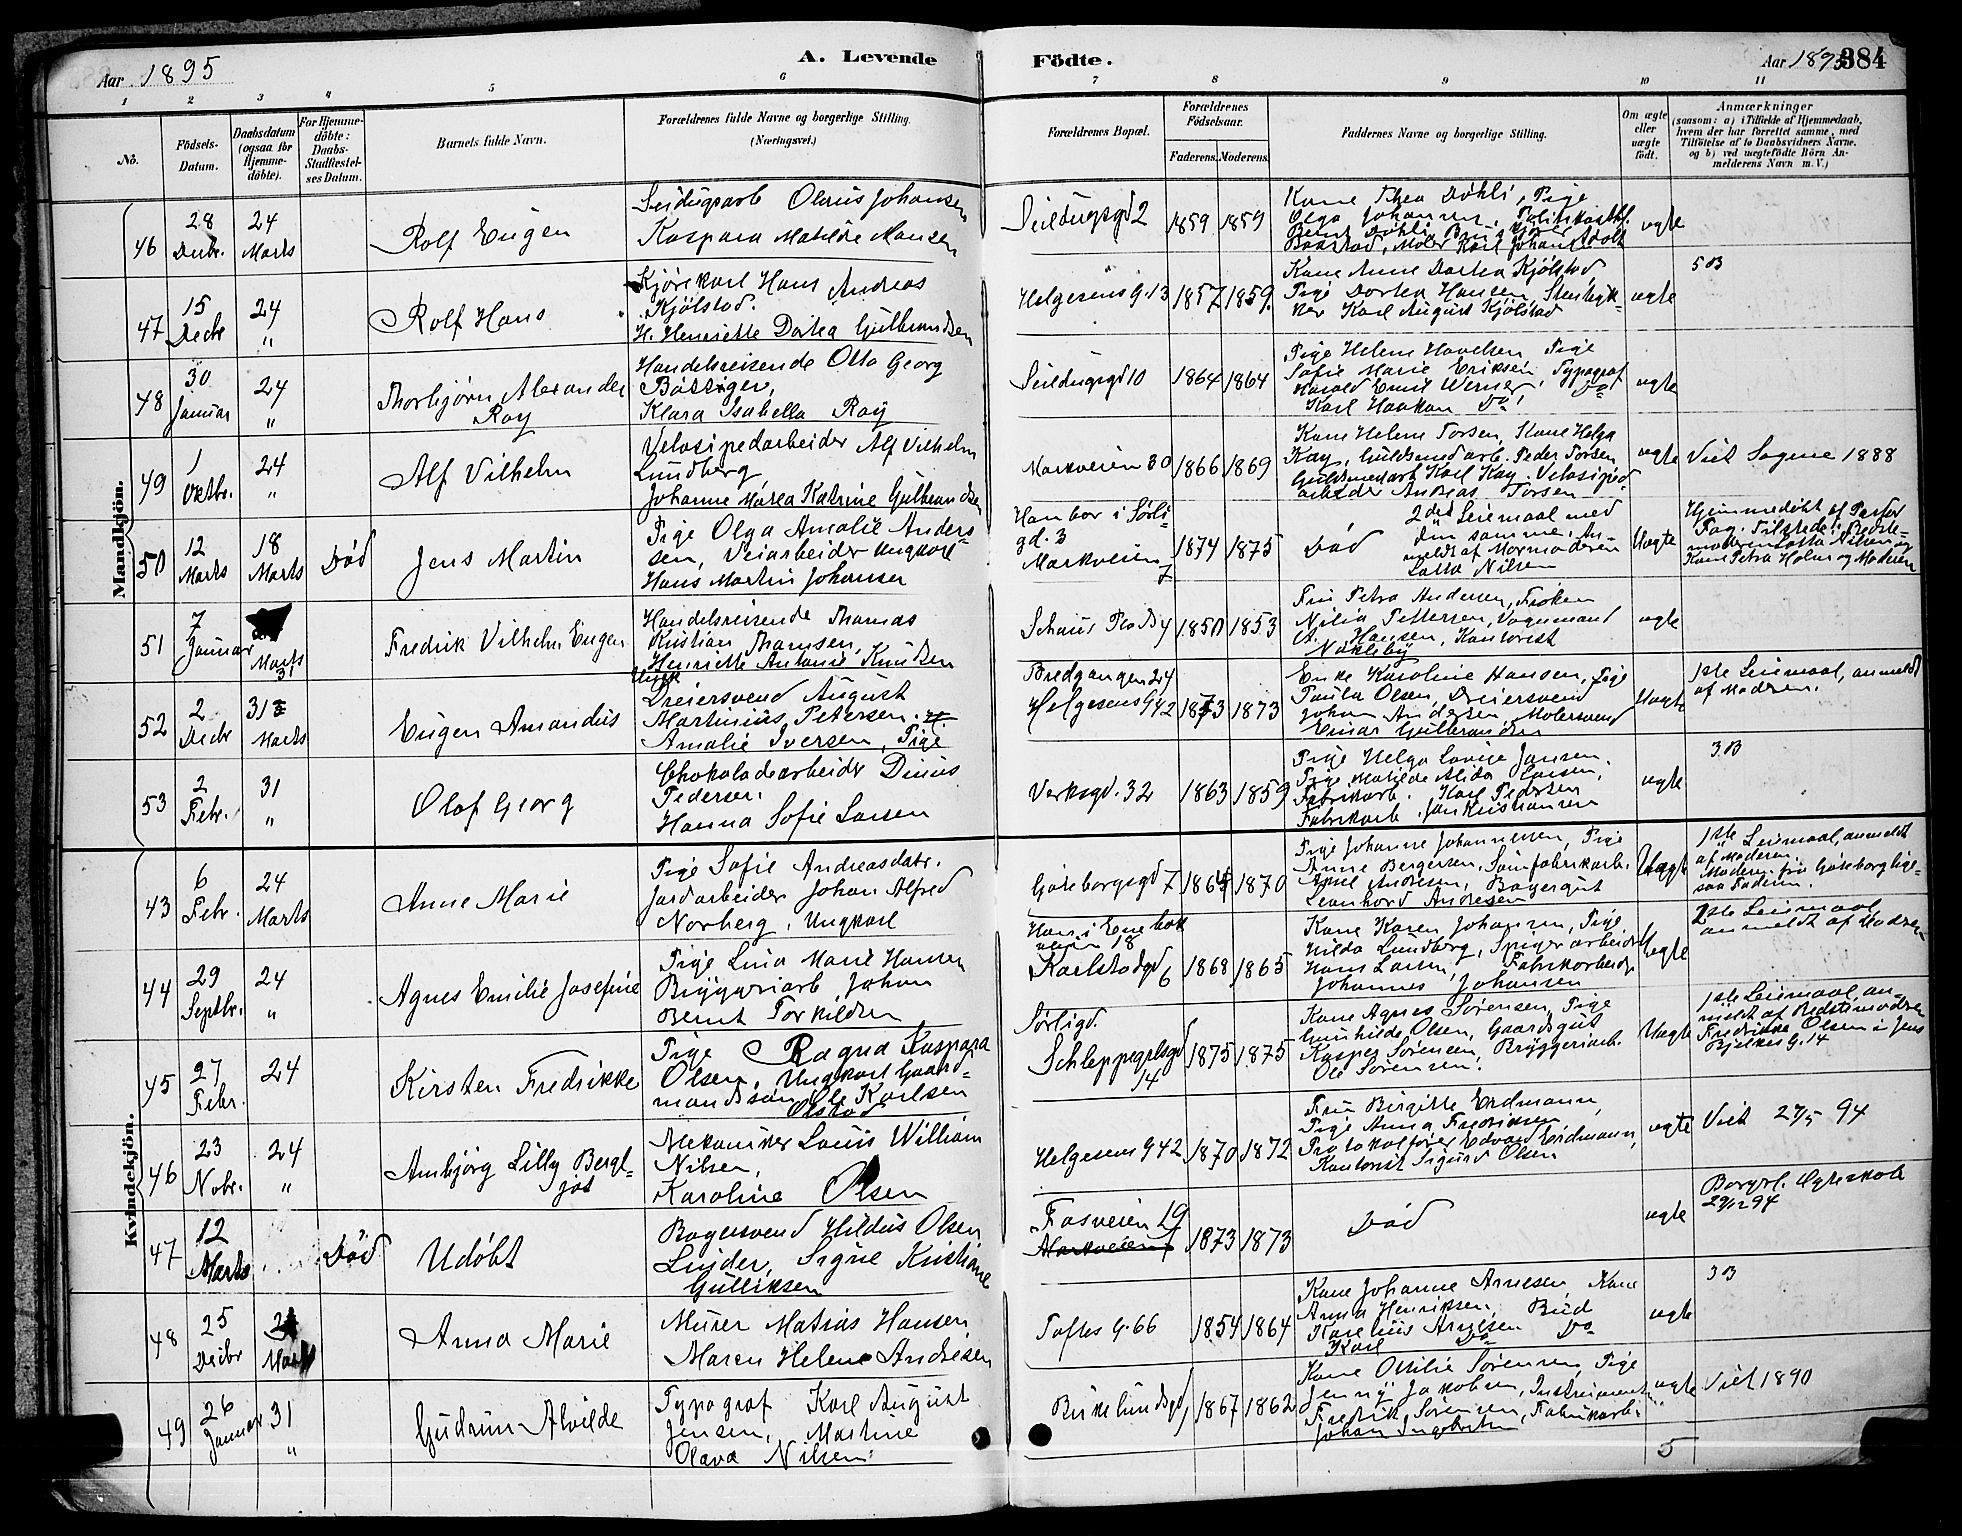 Aar 1895
A. Levende
Födte.
Aar 1895
384
1 2 3 4 5 6 7 8 9 10 11
No.
Födsels-
Datum.
Daabsdatum
(ogsaa for
Hjemme-
döbte).
For Hjemme-
döbte:
Daabs-
Stadfæstel-
ses Datum.
Barnets fulde Navn.
Forældrenes fulde Navne og borgerlige Stilling.
(Næringsvei.)
Forældrenes Bopæl.
Forældrenes
Födselsaar.
Faderens. Moderens.
Faddernes Navne og borgerlige Stilling.
Om ægte
eller
uægte
födt.
Anmærkninger
(saasom: a) i Tilfælde af Hjemmedaab,
hvem der har forrettet samme, med
Tilföielse af to Daabsvidners Navne,
og b) ved uægtefödte Börn An-
melderens Navn m. V.)
Mandkjön.
46
28
Decbr.
24
Marts
Rolf Eugen
Seildugsarb Olaus Johansen
Kaspara Matilde Hansen
Seildugsgd 2
1859 1859
Kone Thea Döhli, Pige
Olga Johansen, Politikonst.
Bernt Döhli,
Baastad, Maler Karl Johan Adolf
ægte
47
15
Decbr
24
"
Rolf Hans
Kjörekarl Hans Andreas
Kjölstad.
H. Henriette Dortea Gulbrandsen
Helgesens G. 13
1857 1859.
Kone Anne Dortea Kjölstad
Pige Dortea Hansen, Stenhyk-
ker Karl August Kjölstad
ægte
5 B
48
30
Januar
24
"
Thorbjörn Alexander
Roy
Handelsreisende Otto Georg
Böttiger,
Klara Isabella Roy
Seildugsgd 10
1864 1864
Pige Helene Havelsen, Pige
Sofie Marie Eriksen, Typograf
Harald Emil Werner, Do
Karl Haakon Do
ægte
49
1
Oktbr.
24
"
Alf Vilhelm
Velosipedarbeider Alf Vilhelm
Lundberg
Johanne Martea Katrine Gulbrandsen
Markveien 30
1866 1869
Kone Helene Torsen, Kone Helga
Kay, Guldsmedarb. Peder Torsen
Guldsmedarb Karl Kay, Velosiped-
arbeider Andreas Torsen
ægte
Viet Sogne 1888
50
12
Marts
18
Marts
Död
Jens Martin
Pige Olga Amalie Anders-
sen, Veiarbeider Ungkarl
Hans Martin Johansen
Han bor i Sörli-
gd. 3
Markveien 7
1874 1875
Död
2det Leiemaal med
den samme. An-
meldt af Mormoderen
Lotta Nilsen
Uægte
Hjemmedöbt af Pastor
Fag. Tilstede: Bedste-
moderen Lotta Nilsen og
Kone Petra Holm og Moderen
51
7
Januar
Marts
31
Fredrik Vilhelm Eugen
Handelsreisende Thomas
Kristian Thomsen,
Henriette Antonie Knudsen
Schous Plads 4
1850 1853
Fru Petra Andersen, Fröken
Nilia Pettersen, Vognmand
A. Hansen, Kontorist
Nökleby
ægte
52
2
Decbr
31
Marts
Eugen Amandus
Ungk
Dreiersvend August
Martinius Petersen.
Amalie Iversen, Pige
Bredgangen 24
Helgesens G 42
1873 1873
Enke Karoline Hansen, Pige
Paula Olsen, Dreiersvend
Johan Andersen, Malersvend
Einar Gulbrandsen
Uægte
1ste Leiemaal, anmeldt
af Moderen.
53
2
Febr.
31
"
Olaf Georg
Chokoladearbeider Dinus
Pedersen.
Hanna Sofie Larsen
Verksgd. 32
1863 1859
Pige Helga Lovise Jansen,
Pige Matilde Alida Larsen,
Fabrikarb. Karl Pedersen
Fabrikarb. Jan Kristiansen
ægte
3 B
Kvindekjön.
43
6
Febr.
24
Marts
Anne Marie
Pige Sofie Andreasdatr.
Jordarbeider Johan Alfred
Norberg, Ungkarl
Göteborgsgd 7
1864 1870
Pige Johanne Johannesen, Pige
Anne Bergersen, Sömfabrikarb.
Emil Andresen, Bagergut
Leonhard Andresen
Uægte
1ste Leiemaal, anmeldt
af Moderen.
Moderen fra Göteborg lige-
saa Faderen.
44
29
Septbr.
24
"
Agnes Emilie Josefine
Pige Lina Marie Hansen
Bryggeriarb Johan
Bernt Torkildsen
Han i Enebak
veien 18
Karlstadgd 6
1868 1865
Kone Karen Johansen, Pige
Hilda Lundberg, Spigerarbeider
Hans Larsen, Fabrikarbeider
Johannes Johansen
Uægte
2ste Leiemaal
anmeldt af Modren
45
27
Febr.
24
Kirsten Fredrikke
Pige Ragna Kaspara
Olsen, Ungkarl Gaard-
mandssön Ole Karlsen
Olstad
Sörligd.
Schleppegrelsgd
14
1875 1875
Kone Agnes Sörensen, Pige
Gunhilde Olsen, Gaardsgut
Kasper Sörensen, Bryggeriarb.
Ole Sörensen.
Uægte
1ste Leiemaal, an-
meldt af Bedstemodren
Fredrikke Olsen i Jens
Bjelkes G. 14
46
23
Nobr.
24
"
Ambjörg Lilly Bergl-
jot
Mekaniker Louis William
Nilsen,
Karoline Olsen
Helgesens G 42
1870 1872
Fru Birgitte Erdmann,
Pige Anna Fredriksen
Protokolförer Edvard Erdmann,
Kontorist Sigurd Olsen
ægte
Viet 27/5 94
47
12
Marts
Död
Udöbt
Bagersvend Hildus Olsen
Linder, Signe Kristiane
Gulliksen
Fosveien 19
Markveien
1873 1873
Död
ægte
Borgerl. Ægteskab
29/12 94
48
25
Decbr
24
Marts
Anna Marie
Murer Matias Hansen
Maren Helene Andresen
Toftes G. 66
1854 1864
Kone Johanne Arnesen, Kone
Anna Henriksen, Bud
Kornelius Arnesen Do
Karl Do
ægte
3 B
49
26
Januar
31
"
Gudrun Alvilde
Typograf Karl August
Jensen, Martine
Olava Nilsen
Birkelundsgd
1867 1862
Kone Otilie Sörensen, Pige
Jenny Jakobsen, Instrument-
Fredrik Sörensen, Fabrikarb.
Johan Ingebretsen
ægte
Viet 1890
5